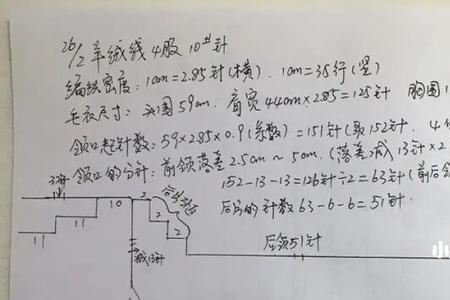 26/2 羊绒线 4股 10#针
编织密度: 10cm=2.85针(横). 10cm=35行(竖)
毛衣尺寸: 头围59cm. 肩宽44cm×285=125针 胸围1
领口起针数: 59×285×0.9(系数)=151针(取152针. 4
领口的分针: 前领落差2.5cm~5cm.(落差减13针×2
152-13-13=126针÷2=63针(前后领
后片的针数 63-6-6=51针.
10 2 2 2
11 11
减13针
后领51针